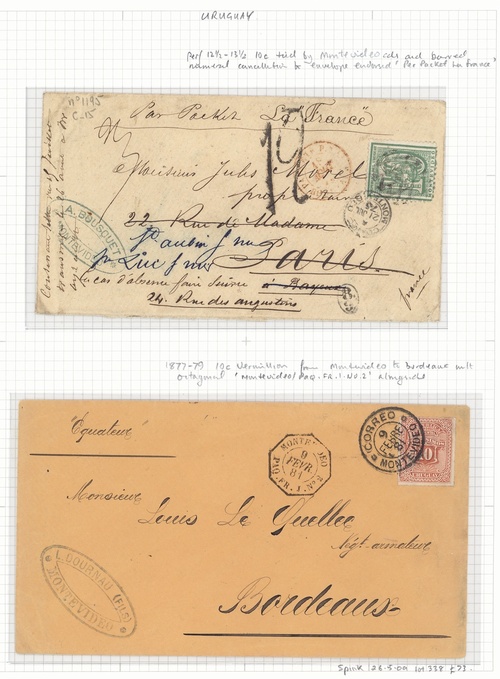 URUGUAY
Perf 12½-13½ 10c tied by Montevideo cds and barred
numeral cancellation to envelope endorsed 'Per Packet La France'
No 1195
C-15
Par Packet La "France"
10
Monsieur Jules Morel
propriétaire
22 Rue de Madame
St aubin s/ mer
pr Luc s/ mer
Paris
en cas d'absence faire suivre
à Bayeux
24, Rue des augustins
france
A. BOUSQUET
MONTEVIDEO
1877-79 10c Vermillion from Montevideo to Bordeaux with
octagonal 'Montevideo/PAQ.FR.I.No.2' alongside
"Équateur"
MONTEVIDEO
9
FEVR.
81
PAQ. FR. I. No 2
CORREO
9
FEBRE
81
MONTEVIDEO
10
Monsieur
Louis Le Quellec
Négt-armateur
Bordeaux
L. DOURNAU (FILS)
MONTEVIDEO
Spink 28.5.09 lot 338 £73